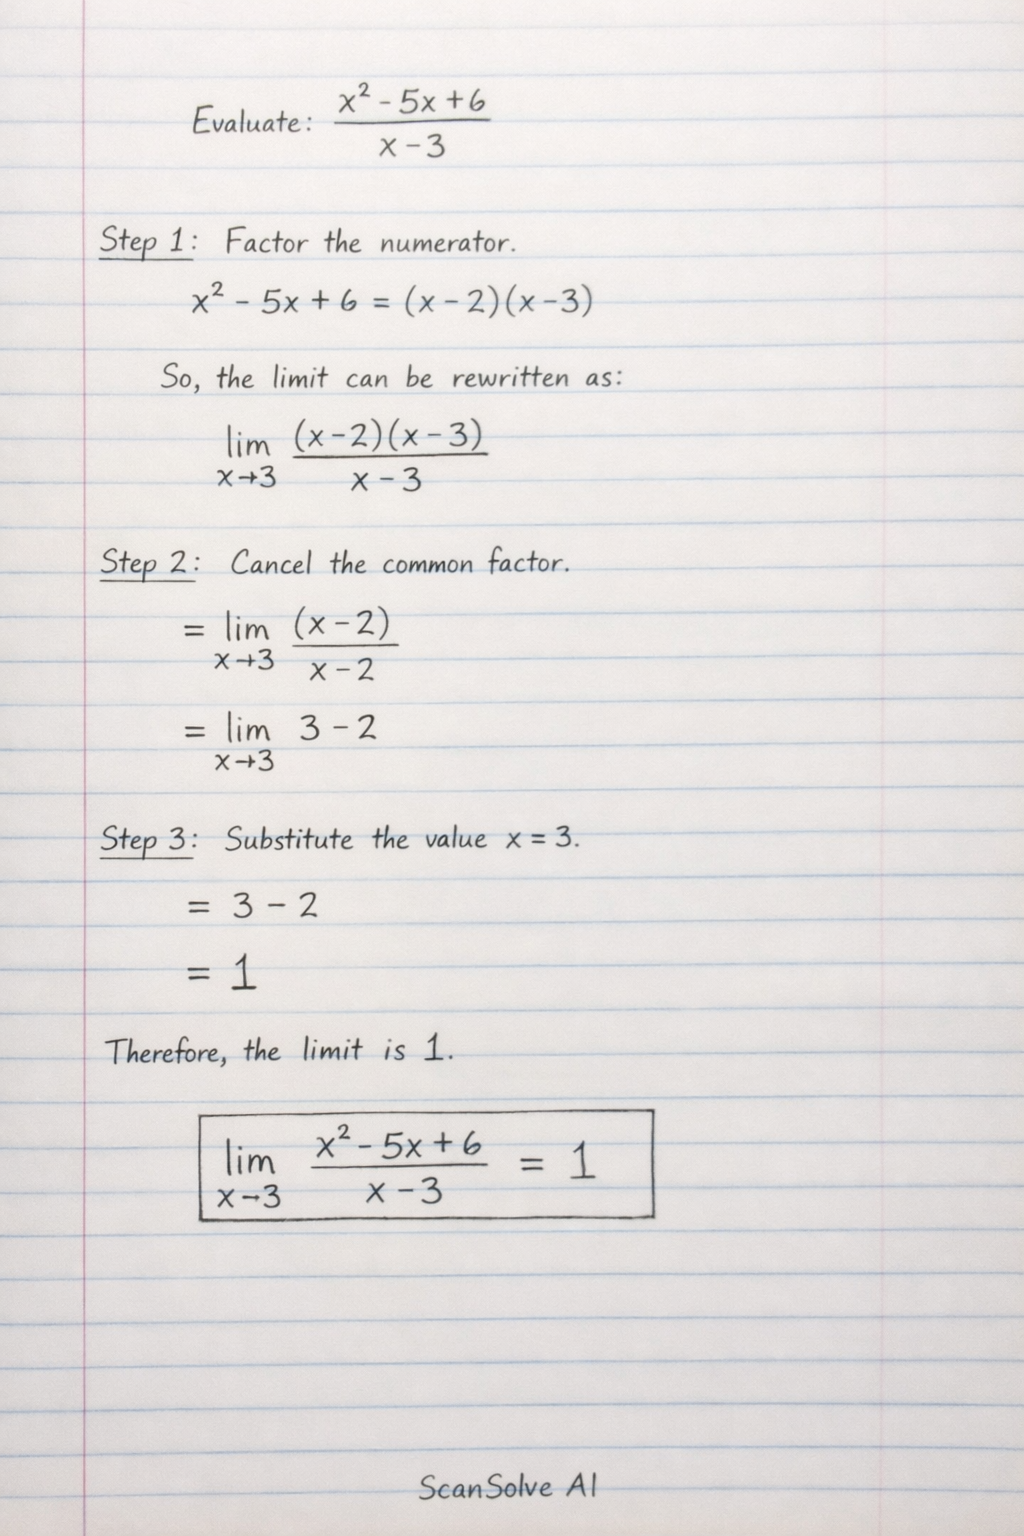 Evaluate: x² - 5x + 6 / x - 3
Step 1: Factor the numerator.
x² - 5x + 6 = (x - 2)(x - 3)
So, the limit can be rewritten as:
lim x→3 (x - 2)(x - 3) / x - 3
Step 2: Cancel the common factor.
= lim x→3 (x - 2) / x - 2
= lim x→3 3 - 2
Step 3: Substitute the value x = 3.
= 3 - 2
= 1
Therefore, the limit is 1.
lim x→3 x² - 5x + 6 / x - 3 = 1
ScanSolve AI